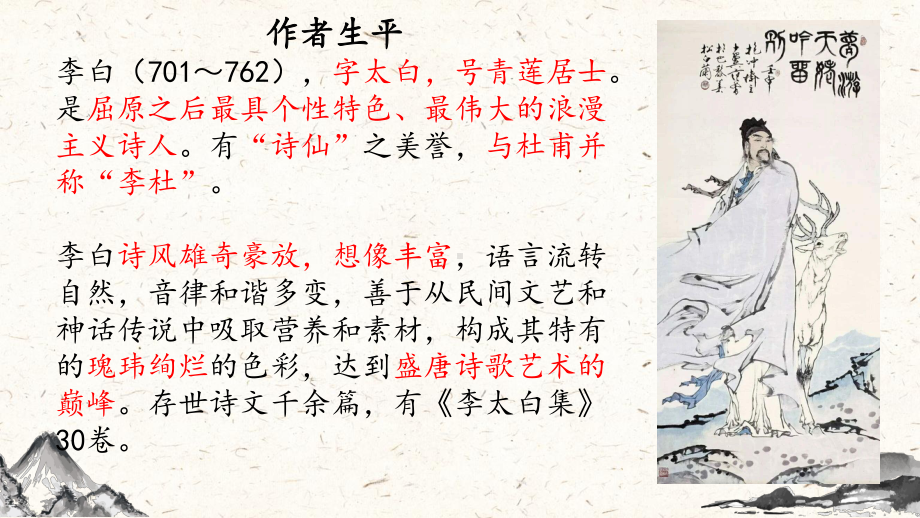 作者生平
李白（701～762），字太白，号青莲居士。
是屈原之后最具个性特色、最伟大的浪漫
主义诗人。有“诗仙”之美誉，与杜甫并
称“李杜”。
李白诗风雄奇豪放，想像丰富，语言流转
自然，音律和谐多变，善于从民间文艺和
神话传说中吸取营养和素材，构成其特有
的瑰玮绚烂的色彩，达到盛唐诗歌艺术的
巅峰。存世诗文千余篇，有《李太白集》
30卷。
梦游
天姥
吟留
别